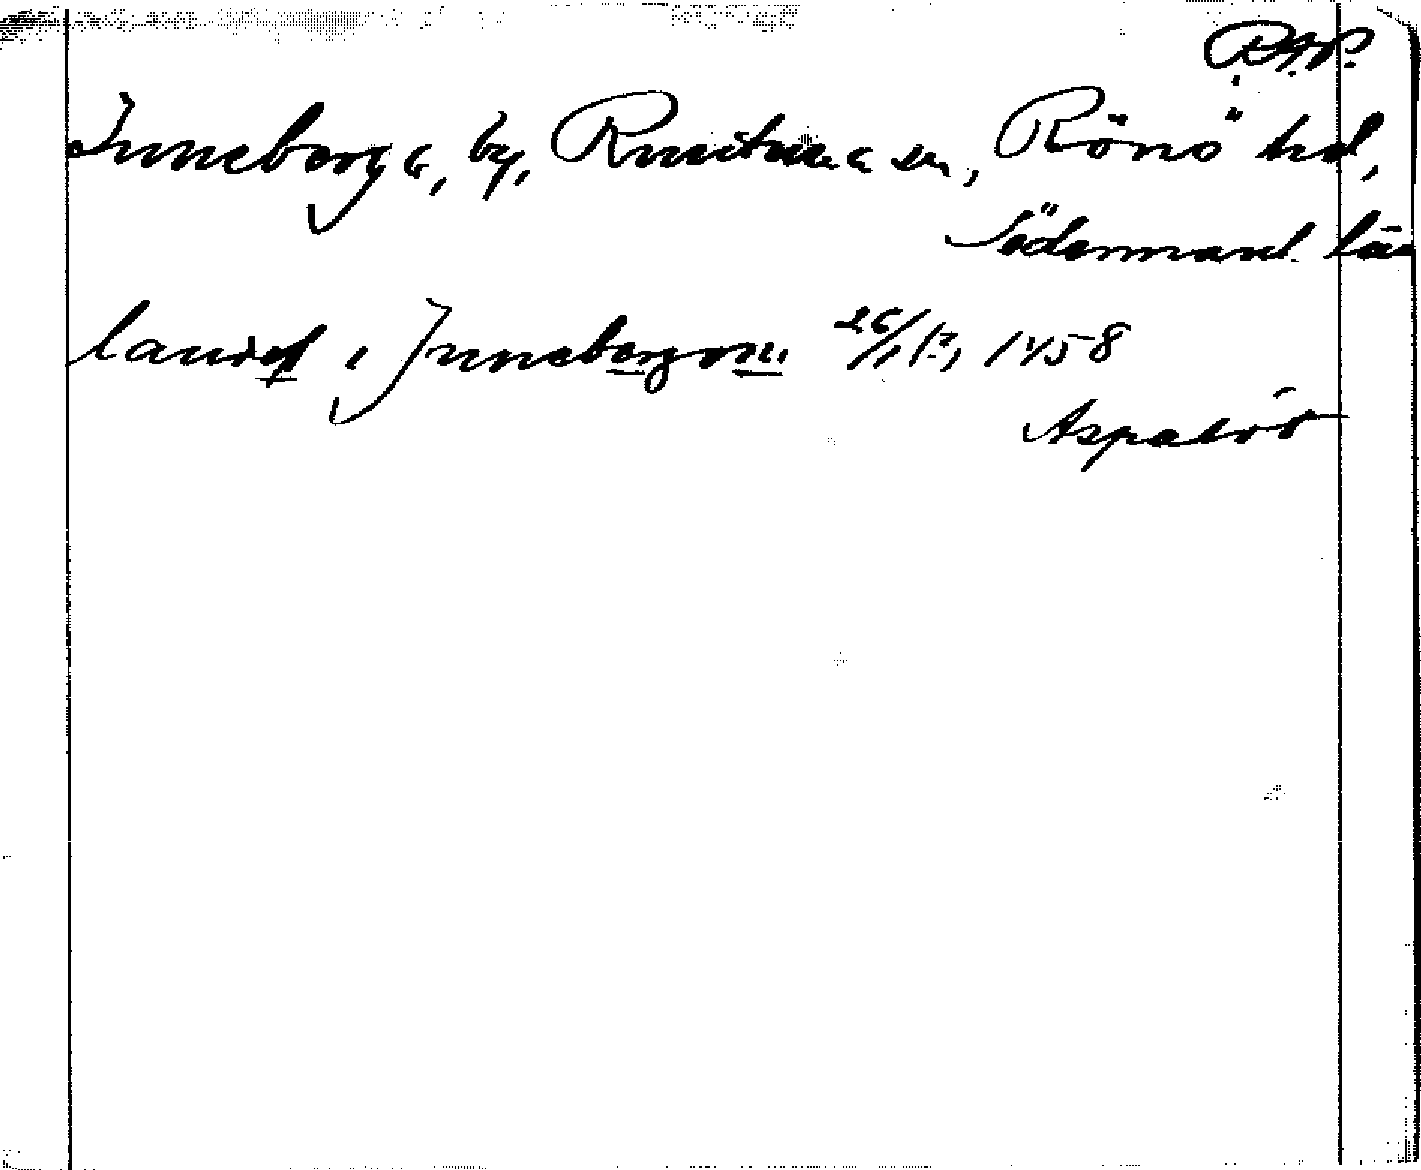 R.A.P.
Inneberga, by, Runtuna sn, Rönö hd,
Södermanl. län
landet i Innebergom 26/12 1458
Aspa löt